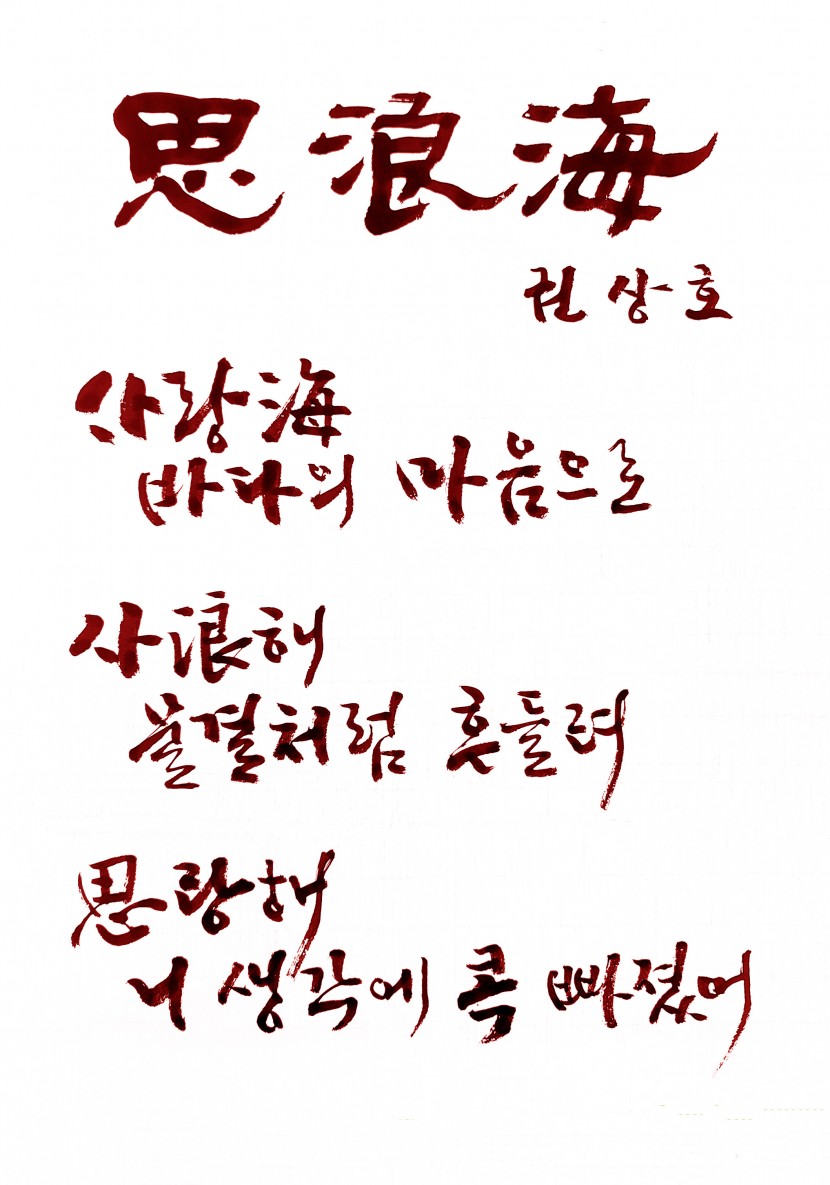 思浪海
권상호
사랑海
바다의 마음으로
사浪해
물결처럼 흔들려
思랑해
니 생각에 콕 빠졌어